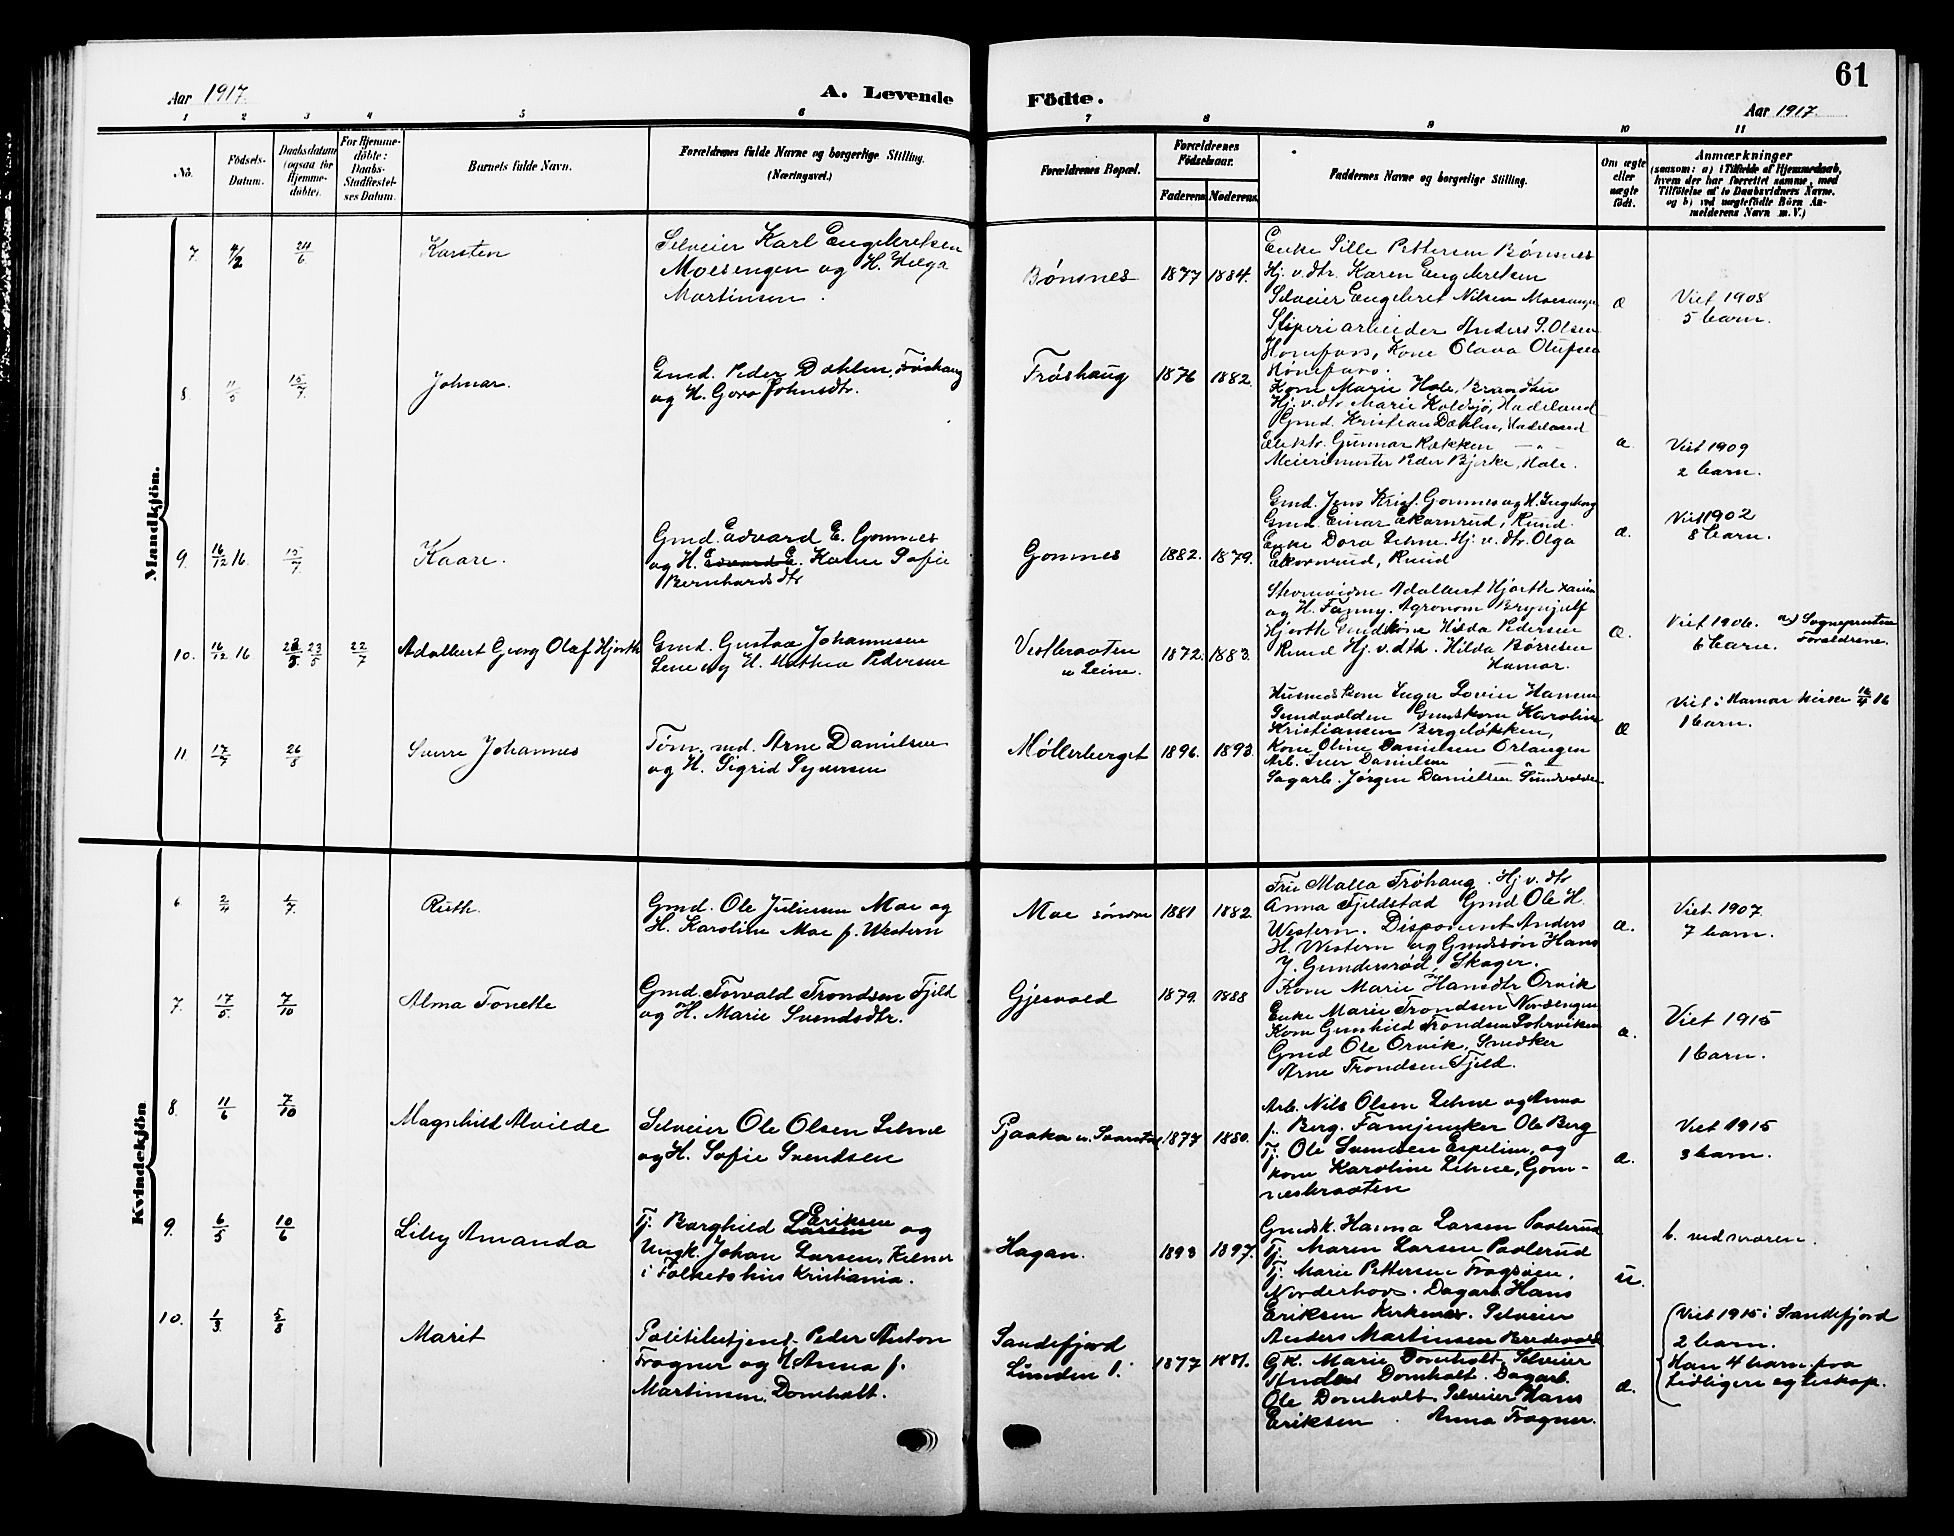 61
Aar 1917.
A. Levende Födte.
Aar 1917.
1 2 3 4 5 6 7 8 9 10 11
No.
Födsels-
Datum.
Daabsdatum
(ogsaa for
Hjemme-
döbte).
For Hjemme-
döbte:
Daabs-
Stadfæstel-
ses Datum.
Barnets fulde Navn.
Forældrenes fulde Navne og borgerlige Stilling.
(Næringsvei.)
Forældrenes Bopæl.
Forældrenes
Födselsaar.
Faderens. Moderens.
Faddernes Navne og borgerlige Stilling.
Om ægte
eller
uægte
födt.
Anmærkninger
(saasom: a) i Tilfælde af Hjemmedaab,
hvem der har forrettet samme, med
Tilföielse af to Daabsvidners Navne.
og b) ved uægtefödte Börn An-
melderens Navn m. V.)
Mandkjön.
7. 4/2 24/6 Karsten
Selveier Karl Engebretsen
Moesengen og H. Helga
Martinsen.
Bønsnes 1877 1884.
Enke Pille Pettersen Bønsnes
Hj. v. dtr. Karen Engebretsen
Selveier Engebret Nilsen
Sliperiarbeider Anders P. Olsen
Hønefoss, Kone Olava Olufsen
Hønefoss.
æ
Viet 1908
5 barn.
8 11/5 15/7 Johnar.
Gmd. Peder Dæhlin, Frøshaug
og H. Gora Johnsdtr.
Frøshaug 1876 1882.
Kone Marie Hole, Brandbu
Hj. v. dtr Marie Koldsjø, Hadeland
Gmd. Kristian Dæhlin, Hadeland
Elektr. Gunnar Køkken — " —
Meierimester Peder Bjerke, Hole.
æ.
Viet 1909
2 barn.
9. 16/12 16 15/7 Kaare.
Gmd. Edvard E. Gomnes
og H. Edvard E. Karen Sofie
Bernhardsdtr
Gomnes 1882. 1879.
Gmd. Jens Krist. Gomnes og H. Ingeborg
Gmd. Einar Ekornrud,
Enke Dora Lehne. Hj. v. dtr. Olga
Ekornrud,
æ.
Viet 1902
8 barn.
10. 16/12 16 23/5 22/7 Adalbert Georg Olaf Hjorth
Gmd. Gustav Johannesen
Leine og H. Mathea Pedersen
Vestbraaten
u Leine. 1872. 1883.
Adalbert Hjorth
og H. Fanny. Agronom Brynjulf
Hjorth Gmdskone Hilda Pedersen
Hj. v. dtr. Hilda Børresen
Hamar.
æ.
Viet 1906. a) Sognepresten
6 barn. Forældrene.
11. 17/7 26/8 Sverre Johannes
Tømmermd. Arne Danielsen
og H. Sigrid Syversen
Møllerberget 1896. 1893.
Husmdskone Inger Lovise Hansen
Sundvolden Gmdskone Karoline
Kristiansen Bergeløkken,
Kone Oline Danielsen Orlangen
Arb. Iver Danielsen — " —
Sagarb. Jørgen Danielsen Sundvolden
æ
Viet i Hamar kirke 16/4 16
1 barn.
Kvindekjön
6 2/4 1/7 Ruth.
Gmd. Ole Juliussen Moe og
H. Karoline Moe f. Western
Moe søndre 1881 1882.
Frue Malla Frøhaug. Hj. v. dtr
Anna Fjeldstad Gmd Ole H.
Western. Disponent Anders
H. Western og Gmdssøn Hans
J. Gundersrød, Skoger.
æ.
Viet 1907
7 barn.
7. 17/5. 7/10 Alma Tonette
Gmd. Torvald Trondsen Fjeld
og H. Marie Svendsdtr.
Gjesvold 1879. 1888
Kone Marie Hansdtr Orvik
Enke Marie Trondsen Nordengen
Kone Gunhild Trondsen
Gmd Ole Orvik, Snedker
Arne Trondsen Fjeld.
æ.
Viet 1915
1 barn.
8. 11/6 7/10 Magnhild Alvilde
Selveier Ole Olsen Lehne
og H. Sofie Svendsen
Pjaaka u. Svarstad 1877 1880.
Arb. Nils Olsen Lehne og Anna
f. Berg. Famjunker Ole Berg
Tj. Ole Svendsen Espelien, og
kone Karoline Lehne, Gom-
nesbraaten
æ.
Viet 1915
3 barn.
9. 6/5 10/6 Lilly Amanda
Tj. Borghild Larsen Eriksen og
Ungk. Johan Larsen, Kelner
i Folketshus Kristiania.
Hagan. 1893 1897.
Gmdsk. Hanna Larsen Paalerud
Tj. Maren Larsen Paalerud
Tj. Marie Pettersen Frogsøien,
Norderhov. Dagarb. Hans
Eriksen Selveier
Anders Martinsen Bredevold
u.
b. ved moren.
10. 1/3. 5/8 Marit
Politibetjent Peder Anton
Frogner og H. Anna f.
Martinsen, Domholt.
Sandefjord
Lunden 1. 1877 1881.
Gk. Marie Domholt. Selveier
Anders Domholt. Dagarb.
Ole Domholt. Selveier Hans
Eriksen. Anna Frogner.
æ.
Viet 1915 i Sandefjord
2 barn.
Han 4 barn fra
tidligere egteskap.